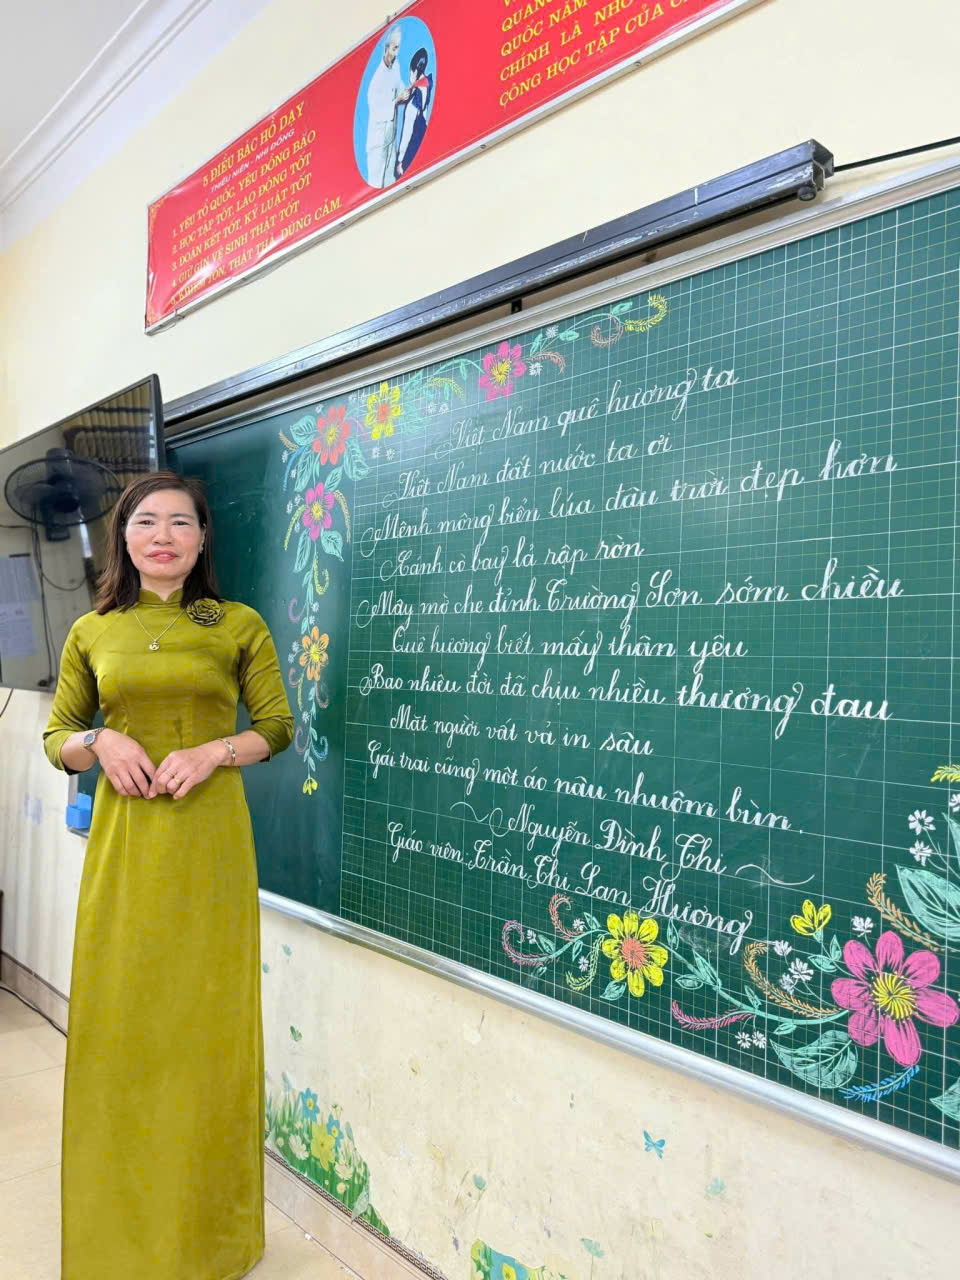 5 ĐIỀU BÁC HỒ DẠY
THIẾU NIÊN - NHI ĐỒNG
1. YÊU TỔ QUỐC, YÊU ĐỒNG BÀO
2. HỌC TẬP TỐT, LAO ĐỘNG TỐT
3. ĐOÀN KẾT TỐT, KỶ LUẬT TỐT
4. GIỮ GÌN VỆ SINH THẬT TỐT
5. KHIÊM TỐN, THẬT THÀ, DŨNG CẢM.
QUANG
QUỐC NĂM
CHÍNH LÀ NHỜ
CÔNG HỌC TẬP CỦA C
Việt Nam quê hương ta
Việt Nam đất nước ta ơi
Mênh mông biển lúa đâu trời đẹp hơn
Cánh cò bay lả rập rờn
Mây mờ che đỉnh Trường Sơn sớm chiều
Quê hương biết mấy thân yêu
Bao nhiêu đời đã chịu nhiều thương đau
Mặt người vất vả in sâu
Gái trai cũng một áo nâu nhuộm bùn.
Nguyễn Đình Thi
Giáo viên: Trần Thị Lan Hương